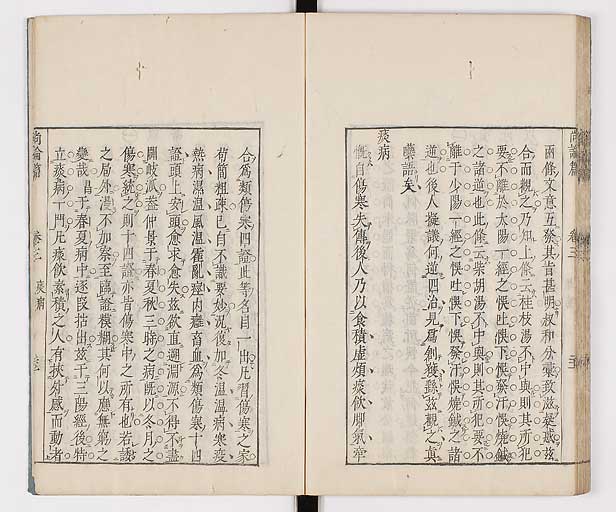 兩條文意互發其旨甚明叔和分彙致滋疑惑茲
合而觀之乃知上條云桂枝湯不中與則其所犯
要不離於太陽一經之悞吐悞下悞發汗悞燒鍼
之諸逆也此條云柴胡湯不中與則其所犯要不
離于少陽一經之悞吐悞下悞發汗悞燒鍼之諸
逆也後人擬議何逆四治見為創獲孫茲觀之真
藥語矣
痰病
慨自傷寒失傳後人乃以食積虛煩痰飲脚氣牽
合為類傷寒四證此等名目一出凡習傷寒之家
苟簡粗疎已自不識要妙況復加冬溫溫病寒疫
熱病濕溫風溫霍亂痙內癰畜血為類傷寒十四
證頭上安頭愈求愈失茲欲直遡淵源不得不盡
闢岐派蓋仲景于春夏秋三時之病既以冬月之
傷寒統之則十四證亦皆傷寒中之所有也若諉
之局外漫不加察至臨證模糊其何以應無窮之
變哉昌于春夏病中逐段拈出茲于三陽經後特
立痰病一門凡痰飲素積之人有挾外感而動者
尚論篇
卷三
痰病
尚論篇
卷三